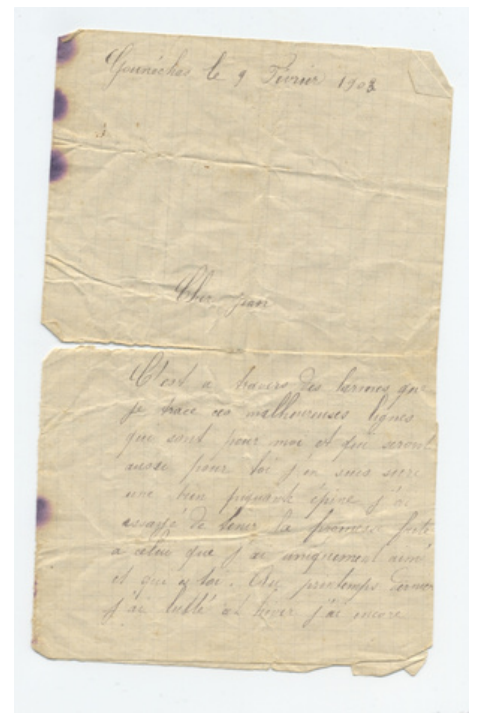 Gounèches le 9 Février 1908
Cher jean
C'est a travers des larmes que
je trace ces malheureuses lignes
qui sont pour moi et qui seront
aussi pour toi j'en suis sure
une bien piquante épine j'ai
essayé de tenir la promesse faite
a celui que j'ai uniquement aimé
et qui est toi. Au printemps dernier
j'ai lutté cet hiver j'ai encore